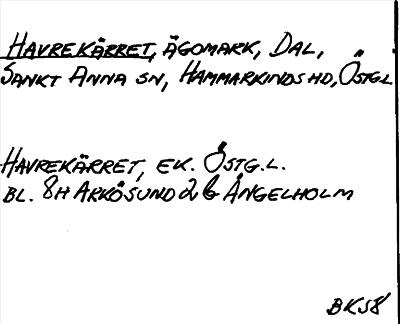 HAVREKÄRRET, ÄGOMARK, DAL,
SANKT ANNA SN, HAMMARKINDS HD, ÖSTGL
HAVREKÄRRET, EK. ÖSTG.L.
BL. 8H ARKÖSUND 2 b ÄNGELHOLM
BKS8